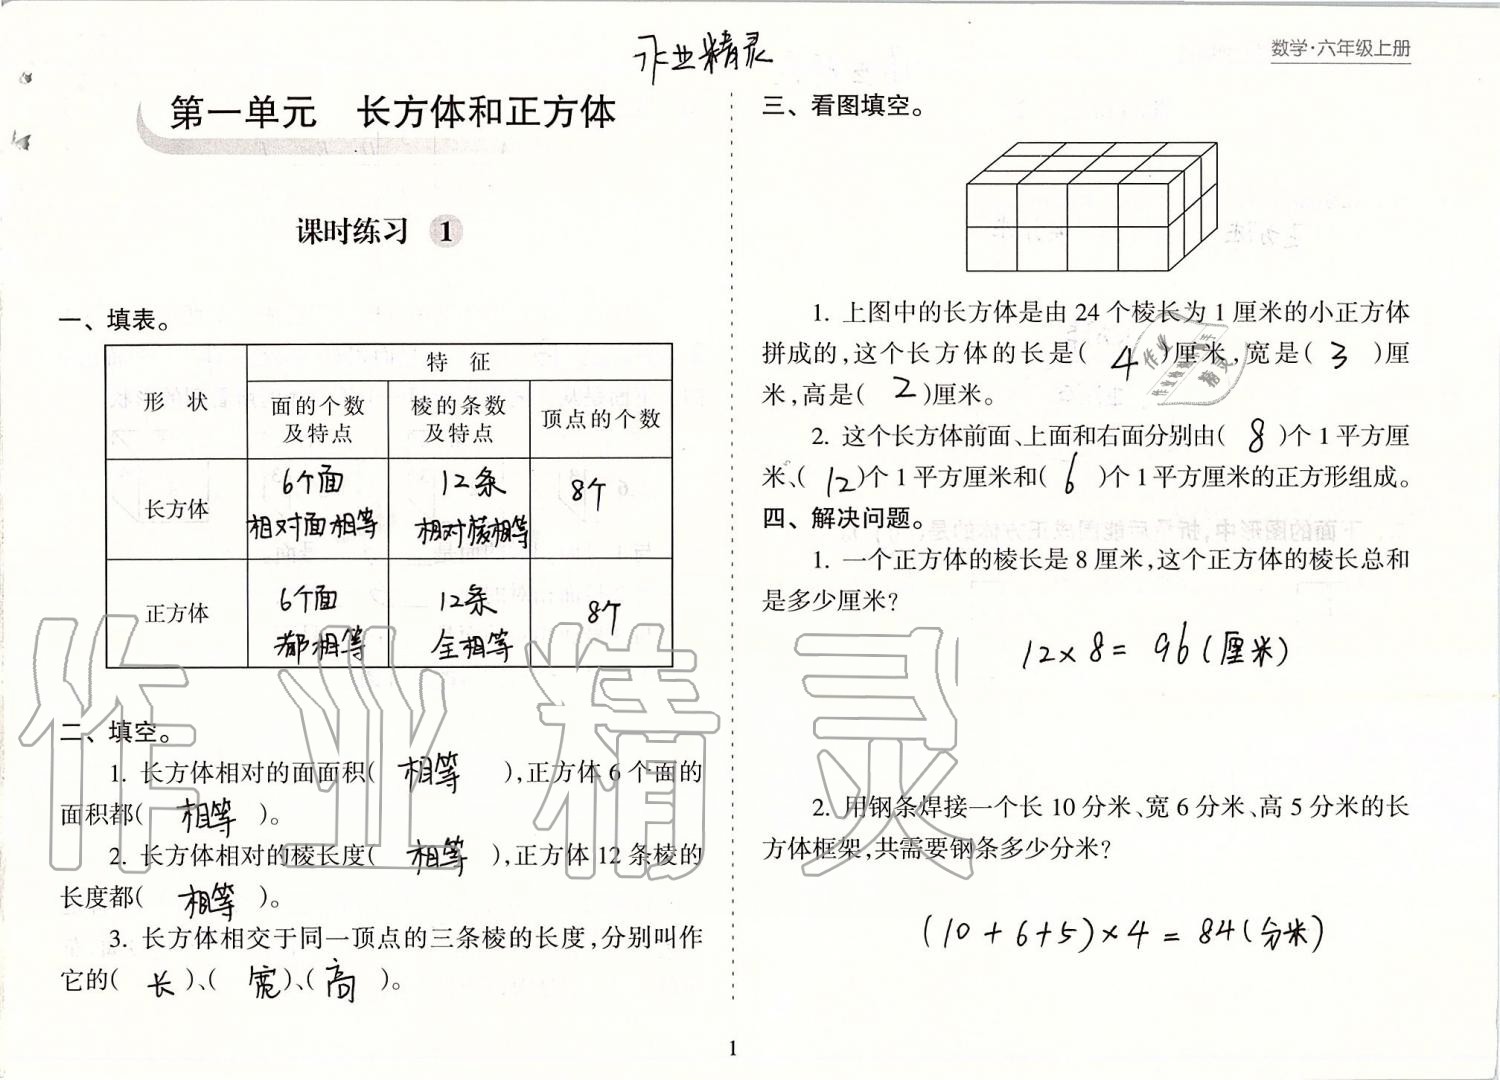 作业精灵
数学·六年级上册
第一单元 长方体和正方体
课时练习 1
一、填表。
形 状
特 征
面的个数及特点
棱的条数及特点
顶点的个数
长方体
6个面
相对面相等
12条
相对棱相等
8个
正方体
6个面
都相等
12条
全相等
8个
二、填空。
1. 长方体相对的面面积( 相等 ),正方体6个面的
面积都( 相等 )。
2. 长方体相对的棱长度( 相等 ),正方体12条棱的
长度都( 相等 )。
3. 长方体相交于同一顶点的三条棱的长度,分别叫作
它的( 长 )、( 宽 )、( 高 )。
三、看图填空。
1. 上图中的长方体是由24个棱长为1厘米的小正方体
拼成的,这个长方体的长是( 4 )厘米,宽是( 3 )厘
米,高是( 2 )厘米。
2. 这个长方体前面、上面和右面分别由( 8 )个1平方厘
米、( 12 )个1平方厘米和( 6 )个1平方厘米的正方形组成。
四、解决问题。
1. 一个正方体的棱长是8厘米,这个正方体的棱长总和
是多少厘米?
12×8=96(厘米)
2. 用钢条焊接一个长10分米、宽6分米、高5分米的长
方体框架,共需要钢条多少分米?
(10+6+5)×4=84(分米)
1
作业精灵
作业
精灵